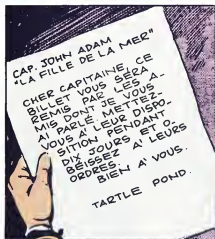 CAP. JOHN ADAM
"LA FILLE DE LA MER"
CHER CAPITAINE, CE
BILLET VOUS SERA
REMIS PAR LES A-
MIS DONT JE VOUS
AI PARLÉ. METTEZ-
VOUS A' LEUR DISPO-
SITION PENDANT
DIX JOURS ET O-
BÉISSEZ A' LEURS
ORDRES.
BIEN A' VOUS.
TARTLE POND.